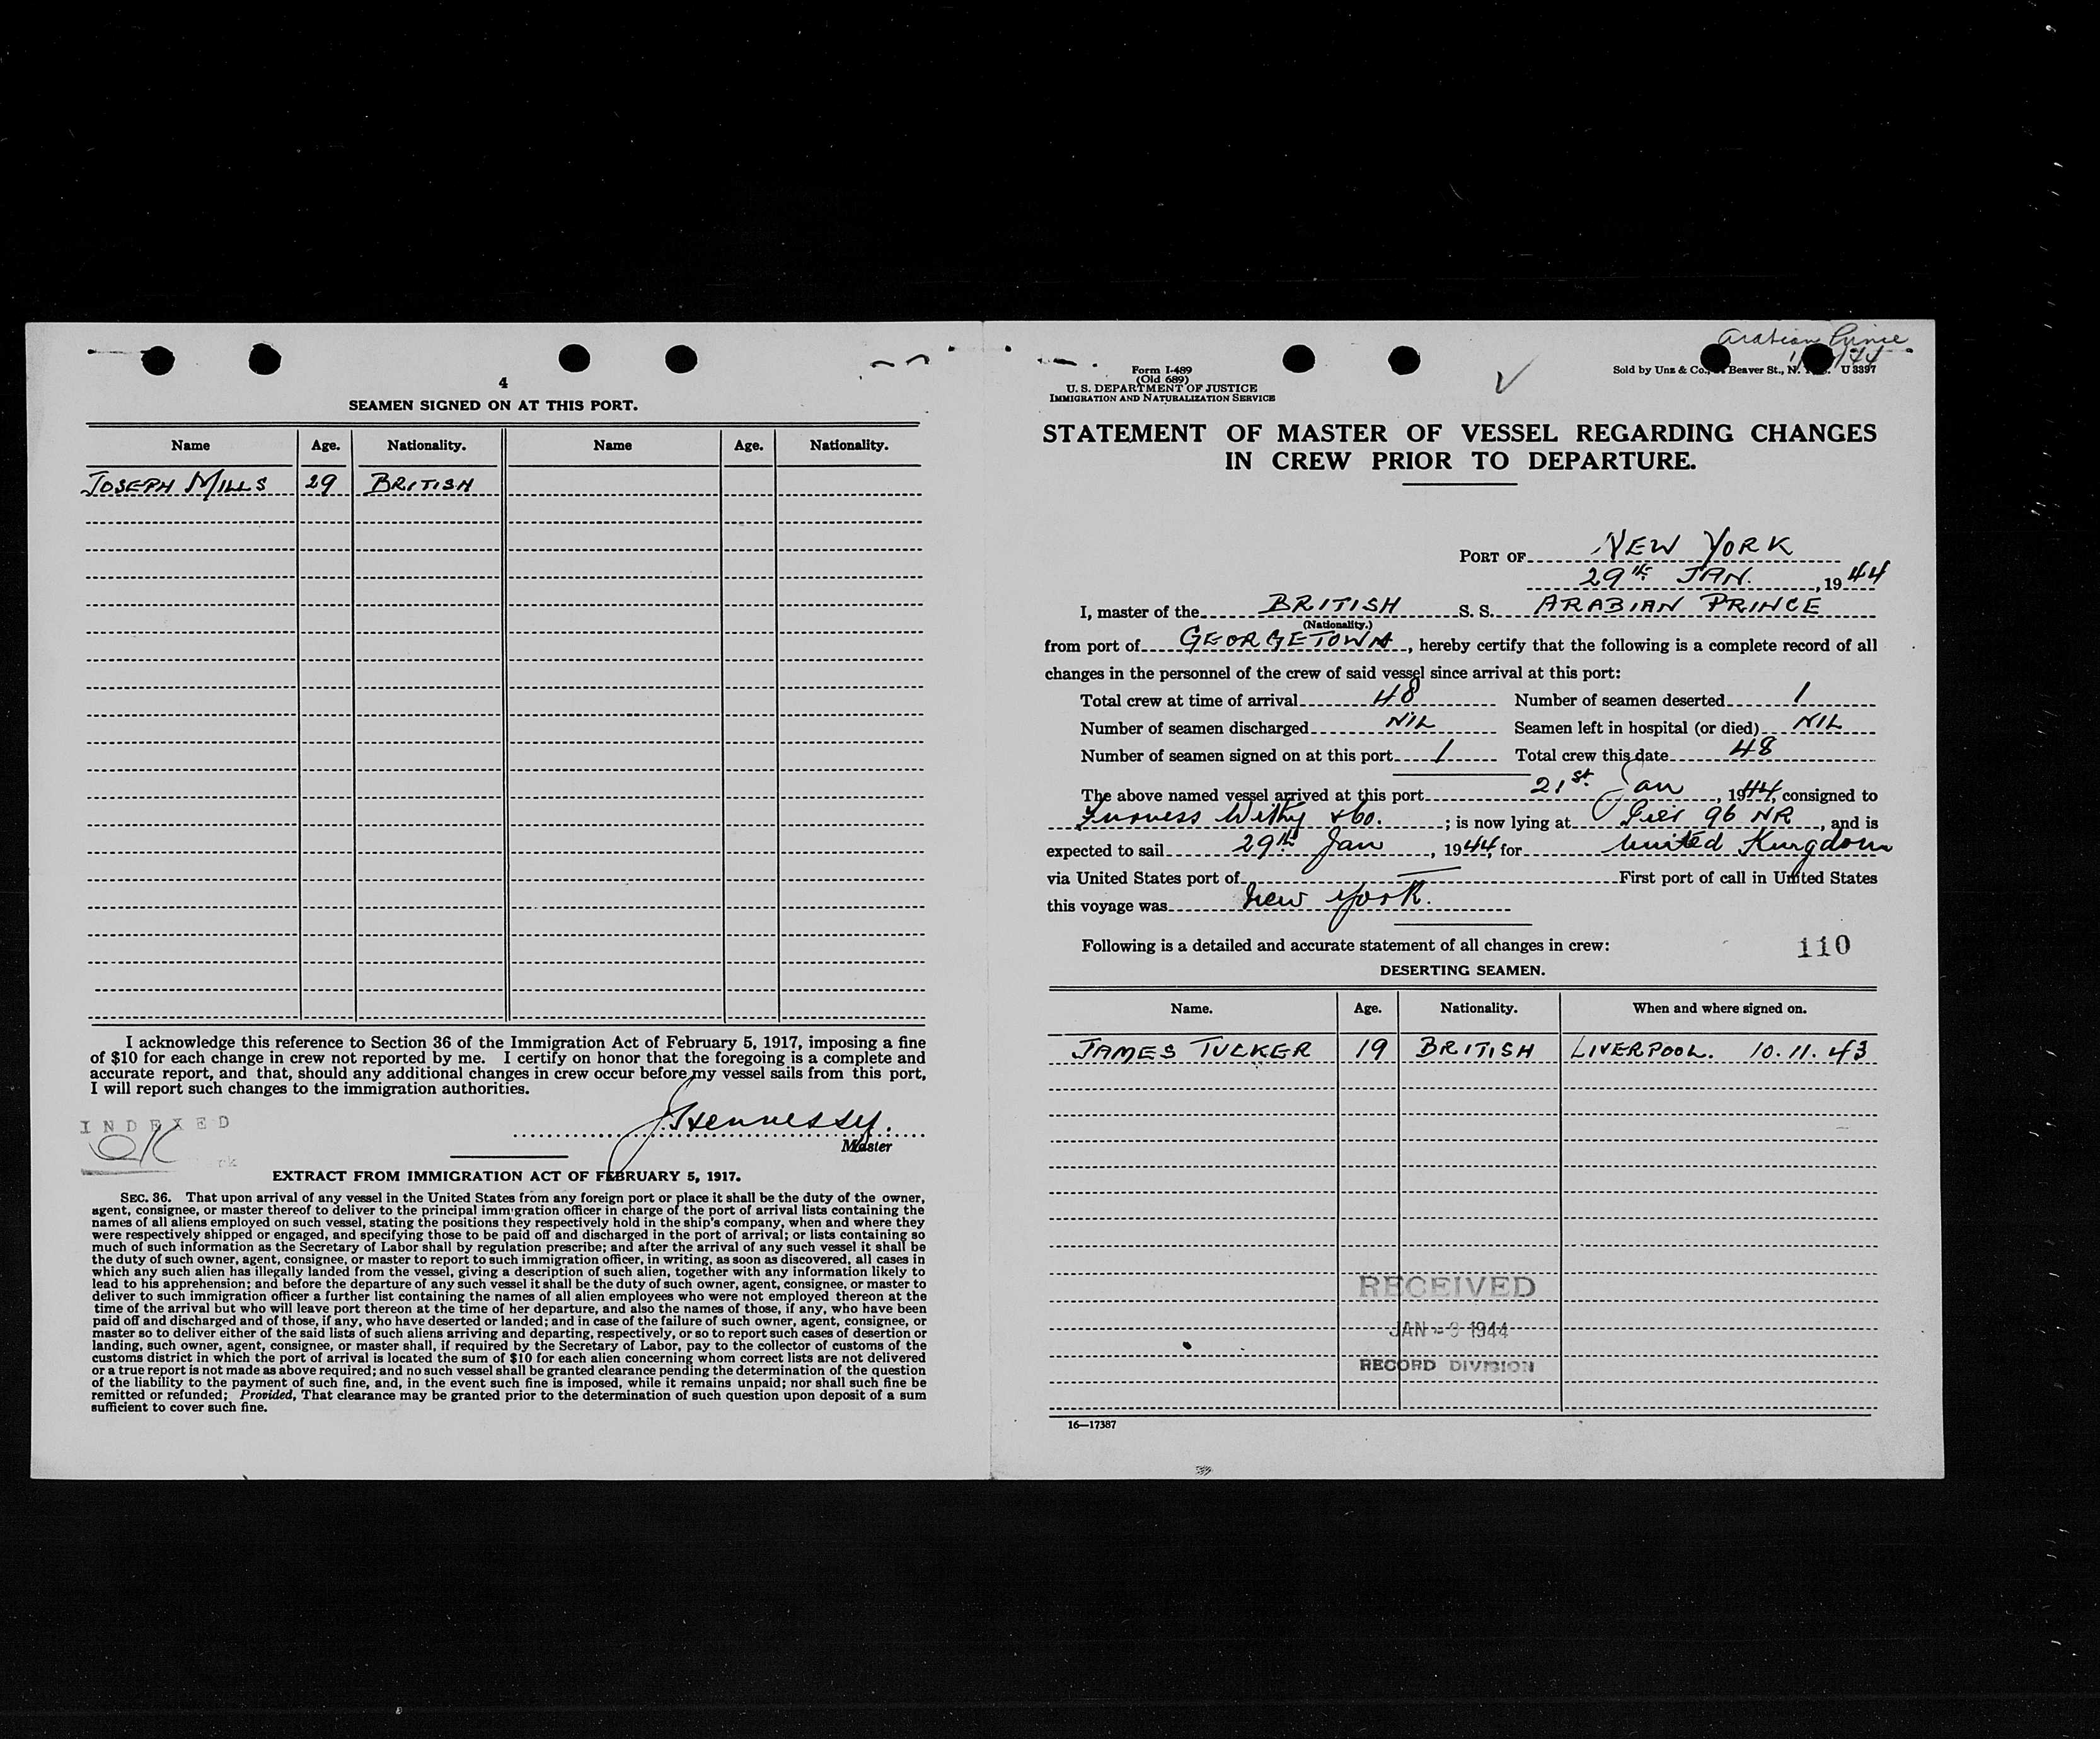 4
SEAMEN SIGNED ON AT THIS PORT.
Name Age. Nationality. Name Age. Nationality.
JOSEPH MILLS 29 BRITISH
I acknowledge this reference to Section 36 of the Immigration Act of February 5, 1917, imposing a fine
of $10 for each change in crew not reported by me. I certify on honor that the foregoing is a complete and
accurate report, and that, should any additional changes in crew occur before my vessel sails from this port,
I will report such changes to the immigration authorities.
INDEXED
OK
J. Hennessy.
Master
EXTRACT FROM IMMIGRATION ACT OF FEBRUARY 5, 1917.
SEC. 36. That upon arrival of any vessel in the United States from any foreign port or place it shall be the duty of the owner,
agent, consignee, or master thereof to deliver to the principal immigration officer in charge of the port of arrival lists containing the
names of all aliens employed on such vessel, stating the positions they respectively hold in the ship's company, when and where they
were respectively shipped or engaged, and specifying those to be paid off and discharged in the port of arrival; or lists containing so
much of such information as the Secretary of Labor shall by regulation prescribe; and after the arrival of any such vessel it shall be
the duty of such owner, agent, consignee, or master to report to such immigration officer, in writing, as soon as discovered, all cases in
which any such alien has illegally landed from the vessel, giving a description of such alien, together with any information likely to
lead to his apprehension; and before the departure of any such vessel it shall be the duty of such owner, agent, consignee, or master to
deliver to such immigration officer a further list containing the names of all alien employees who were not employed thereon at the
time of the arrival but who will leave port thereon at the time of her departure, and also the names of those, if any, who have been
paid off and discharged and of those, if any, who have deserted or landed; and in case of the failure of such owner, agent, consignee, or
master so to deliver either of the said lists of such aliens arriving and departing, respectively, or so to report such cases of desertion or
landing, such owner, agent, consignee, or master shall, if required by the Secretary of Labor, pay to the collector of customs of the
customs district in which the port of arrival is located the sum of $10 for each alien concerning whom correct lists are not delivered
or a true report is not made as above required; and no such vessel shall be granted clearance pending the determination of the question
of the liability to the payment of such fine, and, in the event such fine is imposed, while it remains unpaid; nor shall such fine be
remitted or refunded; Provided, That clearance may be granted prior to the determination of such question upon deposit of a sum
sufficient to cover such fine.
Arabian Prince
Form I-489
(Old 689)
U. S. DEPARTMENT OF JUSTICE
IMMIGRATION AND NATURALIZATION SERVICE
Sold by Unz & Co., Beaver St., N. U 3397
STATEMENT OF MASTER OF VESSEL REGARDING CHANGES
IN CREW PRIOR TO DEPARTURE.
PORT OF NEW YORK
29th JAN. , 1944
I, master of the BRITISH S. S. ARABIAN PRINCE
(Nationality.)
from port of GEORGETOWN, hereby certify that the following is a complete record of all
changes in the personnel of the crew of said vessel since arrival at this port:
Total crew at time of arrival 48 Number of seamen deserted 1
Number of seamen discharged NIL Seamen left in hospital (or died) NIL
Number of seamen signed on at this port 1 Total crew this date 48
The above named vessel arrived at this port 21st Jan , 1944, consigned to
Furness Withy & Co. ; is now lying at Pier 96 NR , and is
expected to sail 29th Jan , 1944, for United Kingdom
via United States port of — First port of call in United States
this voyage was New York.
Following is a detailed and accurate statement of all changes in crew:
110
DESERTING SEAMEN.
Name. Age. Nationality. When and where signed on.
JAMES TUCKER 19 BRITISH LIVERPOOL. 10.11.43
RECEIVED
JAN 1944
RECORD DIVISION
16—17387